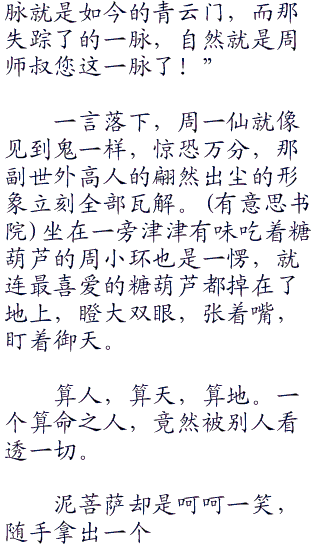 脉就是如今的青云门，而那
失踪了的一脉，自然就是周
师叔您这一脉了！”
一言落下，周一仙就像
见到鬼一样，惊恐万分，那
副世外高人的翩然出尘的形
象立刻全部瓦解。(有意思书
院)坐在一旁津津有味吃着糖
葫芦的周小环也是一愣，就
连最喜爱的糖葫芦都掉在了
地上，瞪大双眼，张着嘴，
盯着御天。
算人，算天，算地。一
个算命之人，竟然被别人看
透一切。
泥菩萨却是呵呵一笑，
随手拿出一个